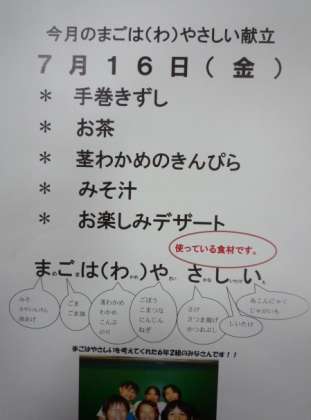 今月のまごは(わ)やさしい献立
7月16日(金)
* 手巻きずし
* お茶
* 茎わかめのきんぴら
* みそ汁
* お楽しみデザート
使っている食材です。
まごは(わ)やさしい
みそ
油あげ
ごま
ごま油
茎わかめ
わかめ
こんぶ
のり
ごぼう
こまつな
にんじん
ねぎ
さけ
さつま揚げ
かつおぶし
しいたけ
糸こんにゃく
じゃがいも
まごはやさしいを考えてくれた6年2組のみなさんです!!